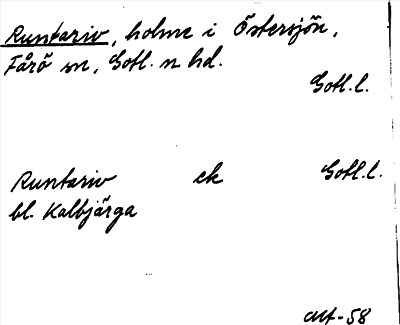 Runtariv, holme i Östersjön,
Fårö sn, Gotl. n hd.
Gotl. l.
Runtariv ek Gotl. l.
bl. Kalbjärga
Alf-58